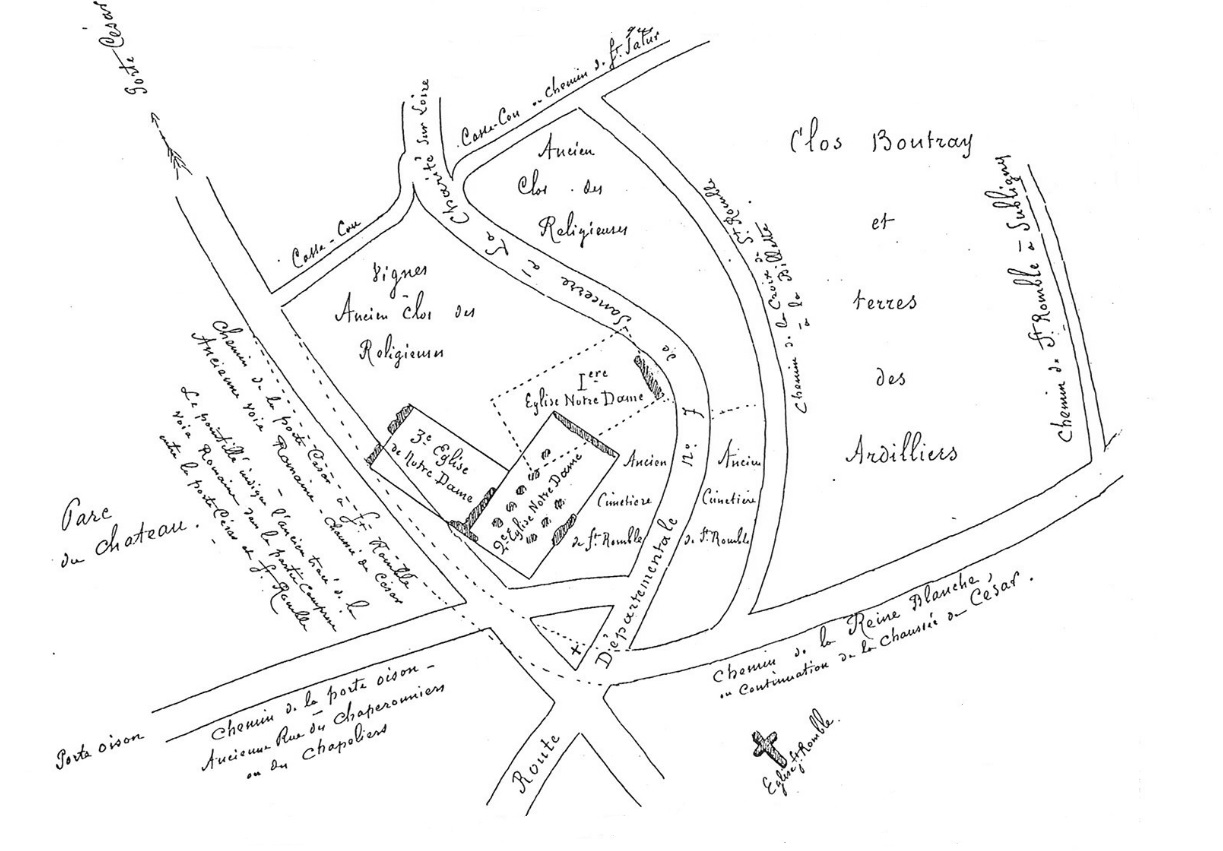 Porte César
Casse-Cou
Casse-Cou ou chemin de St. Satur
Route Départementale No. 7 de Sancerre à La Charité sur Loire
Ancien
Clos des
Religieuses
Vignes
Ancien Clos des
Religieuses
Ière
Eglise Notre Dame
2e Eglise Notre Dame
3e Eglise
de Notre
Dame
Ancien
Cimetière
de St. Romble
Ancien
Cimetière
de St. Romble
Chemin de la Croix de St. Romble
à la Billette
Clos Boutray
et
terres
des
Ardilliers
Chemin de St. Romble à Subligny
Chemin de la porte César à St. Romble
Ancienne voie Romaine - Chaussée de César
Le pointillé indique l'ancien tracé de la
voie Romaine dans la partie comprise
entre la porte César et St. Romble
Parc
du Chateau.
Porte oison
Chemin de la porte oison -
Ancienne Rue des Chaperonniers
ou des Chapeliers
Chemin de la Reine Blanche,
ou Continuation de la Chaussée de César.
Eglise St. Romble.